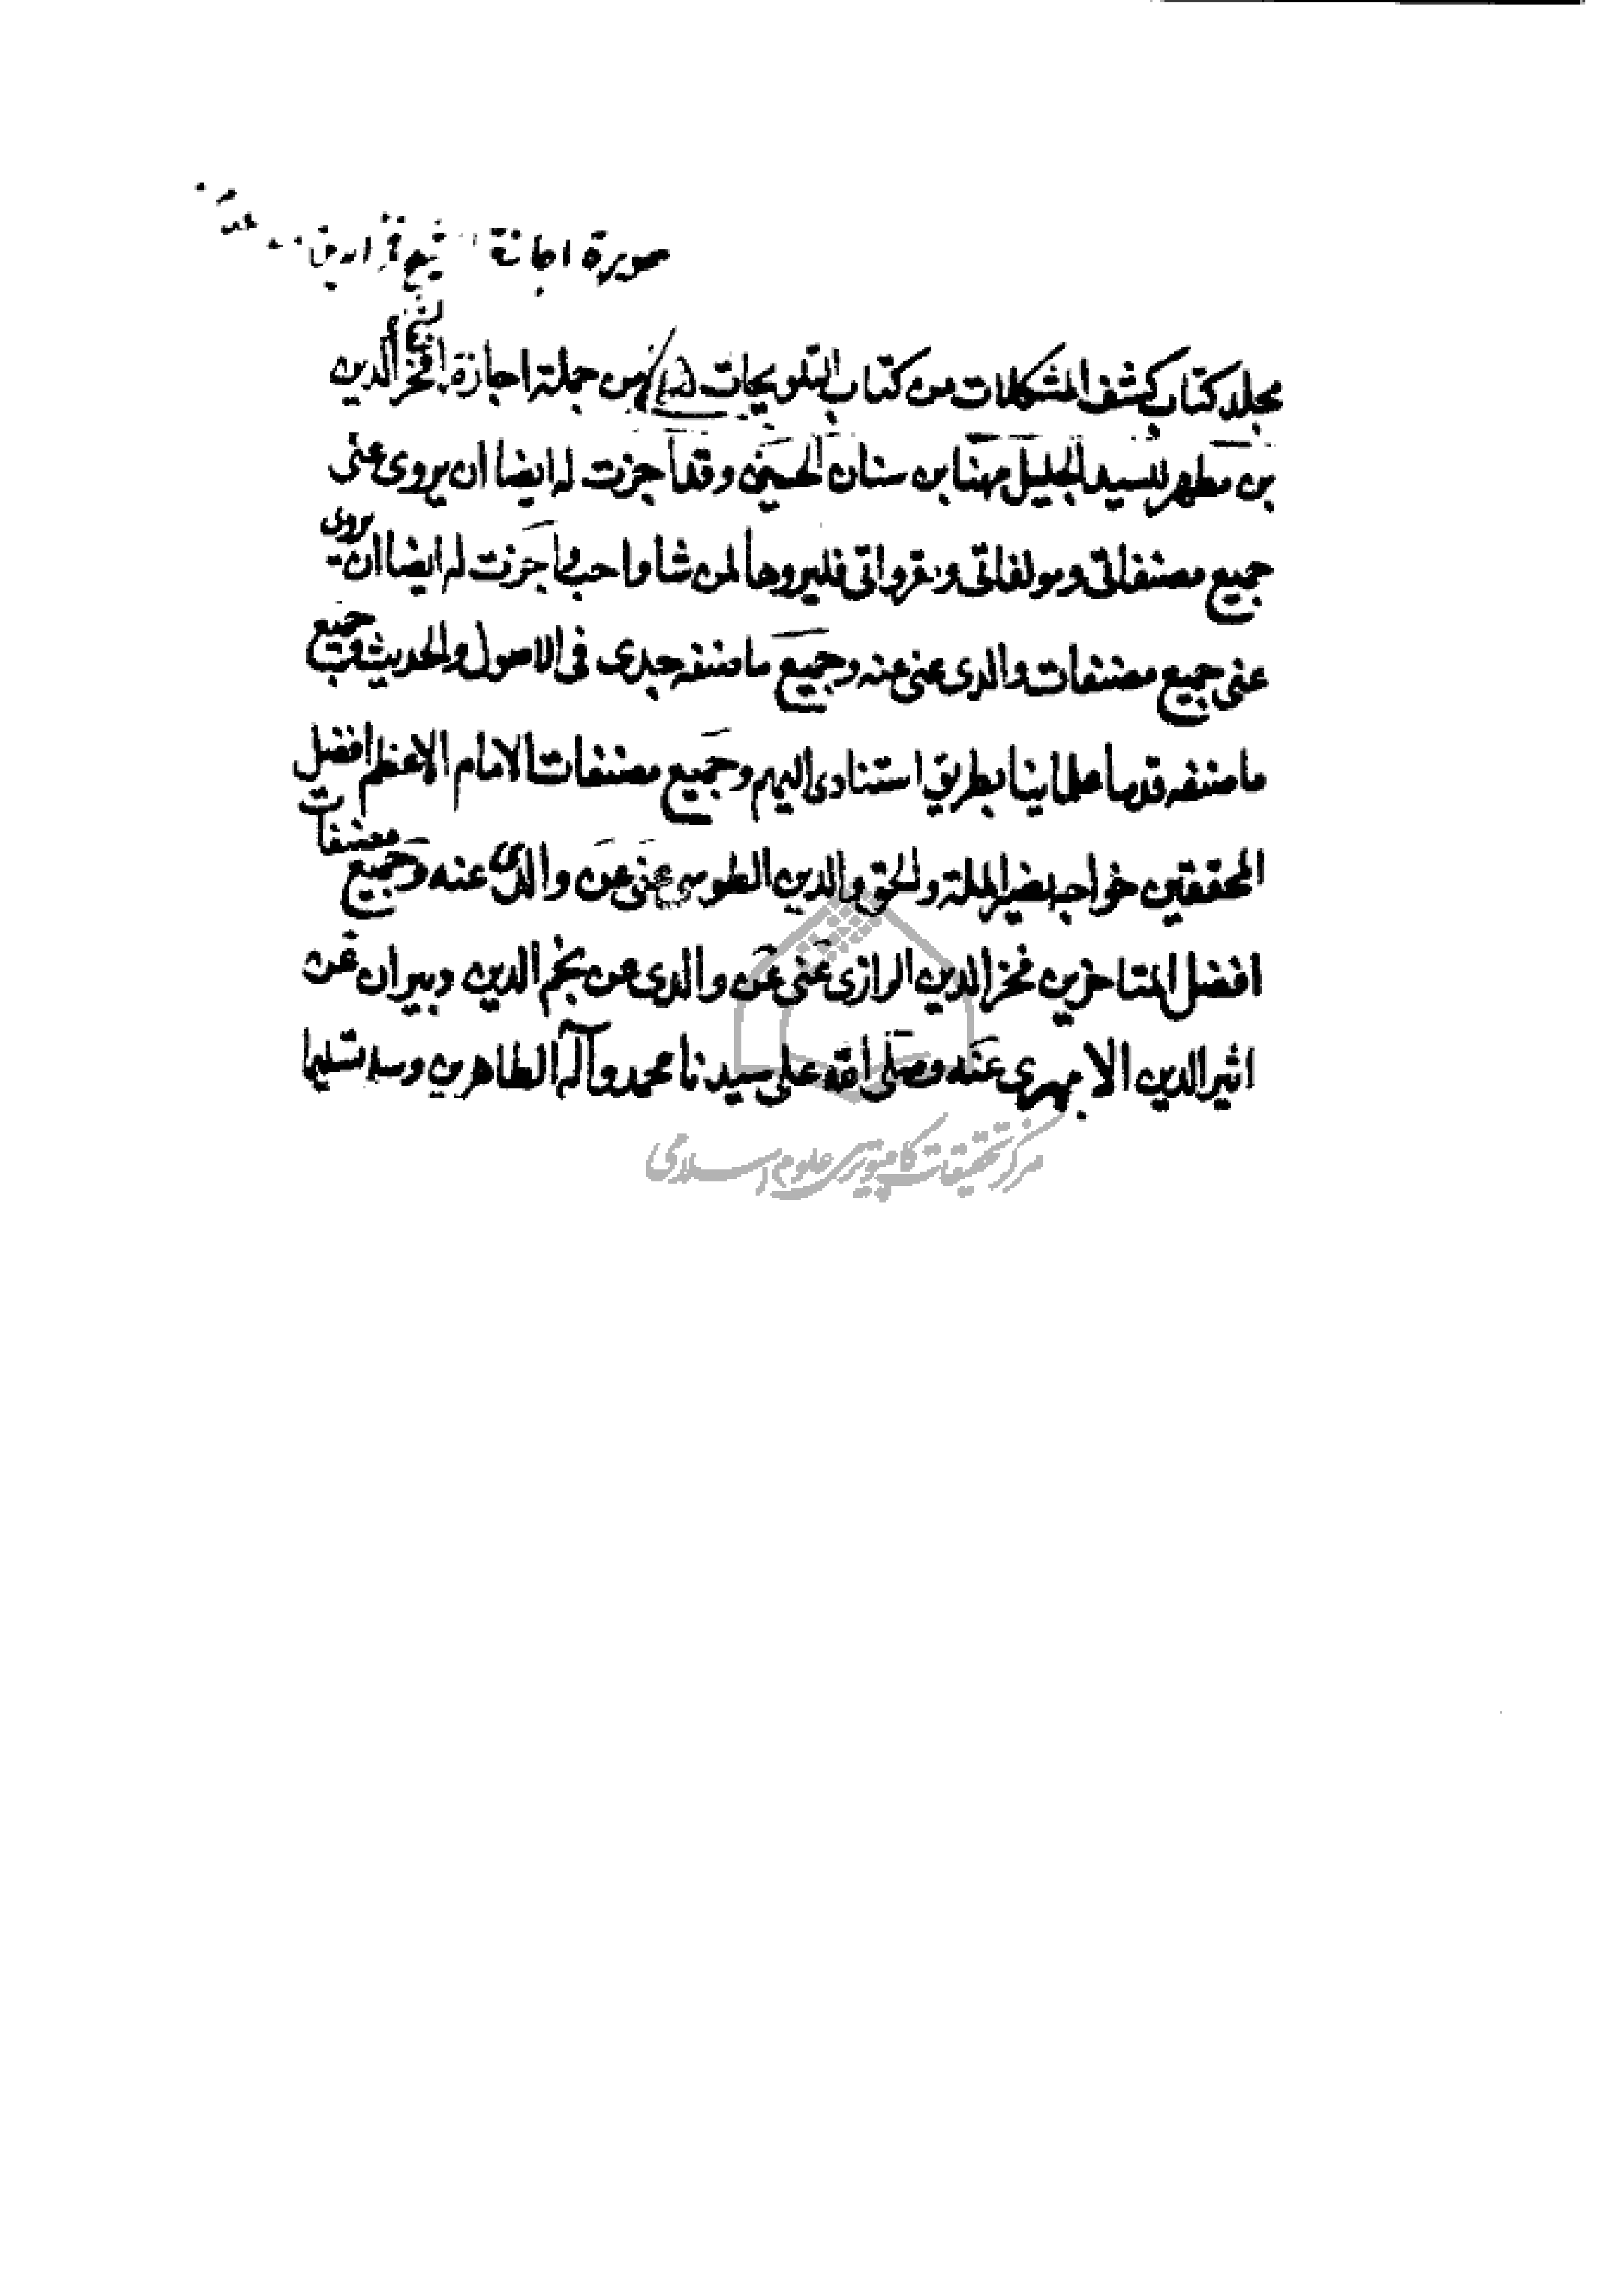 صورة اجازة الشيخ فخر الدين
مجلد كتاب كشف المشكلات من كتاب التلويحات من جملة اجازة الشيخ فخر الدين
بن مطهر للسيد الجليل مهنا بن سنان الحسيني وقد اجزت له ايضا ان يروى عنى
جميع مصنفاتى ومولفاتى ومقرواتى فليروها لمن شا واحب واجزت له ايضا ان يروى
عنى جميع مصنفات والدى عنى عنه وجميع ما صنفه جدى فى الاصول والحديث وجميع
ما صنفه قدما علماينا بطريق استنادى اليهم وجميع مصنفات الامام الاعظم افضل
المحققين خواجه نصير الملة والحق والدين الطوسى عنى عن والدى عنه وجميع مصنفات
افضل المتاخرين فخر الدين الرازى عنى عن والدى عن نجم الدين دبيران عن
اثير الدين الابهرى عنه وصلى الله على سيدنا محمد وآله الطاهرين وسلم تسليما
مركز تحقيقات كامپيوترى علوم اسلامى